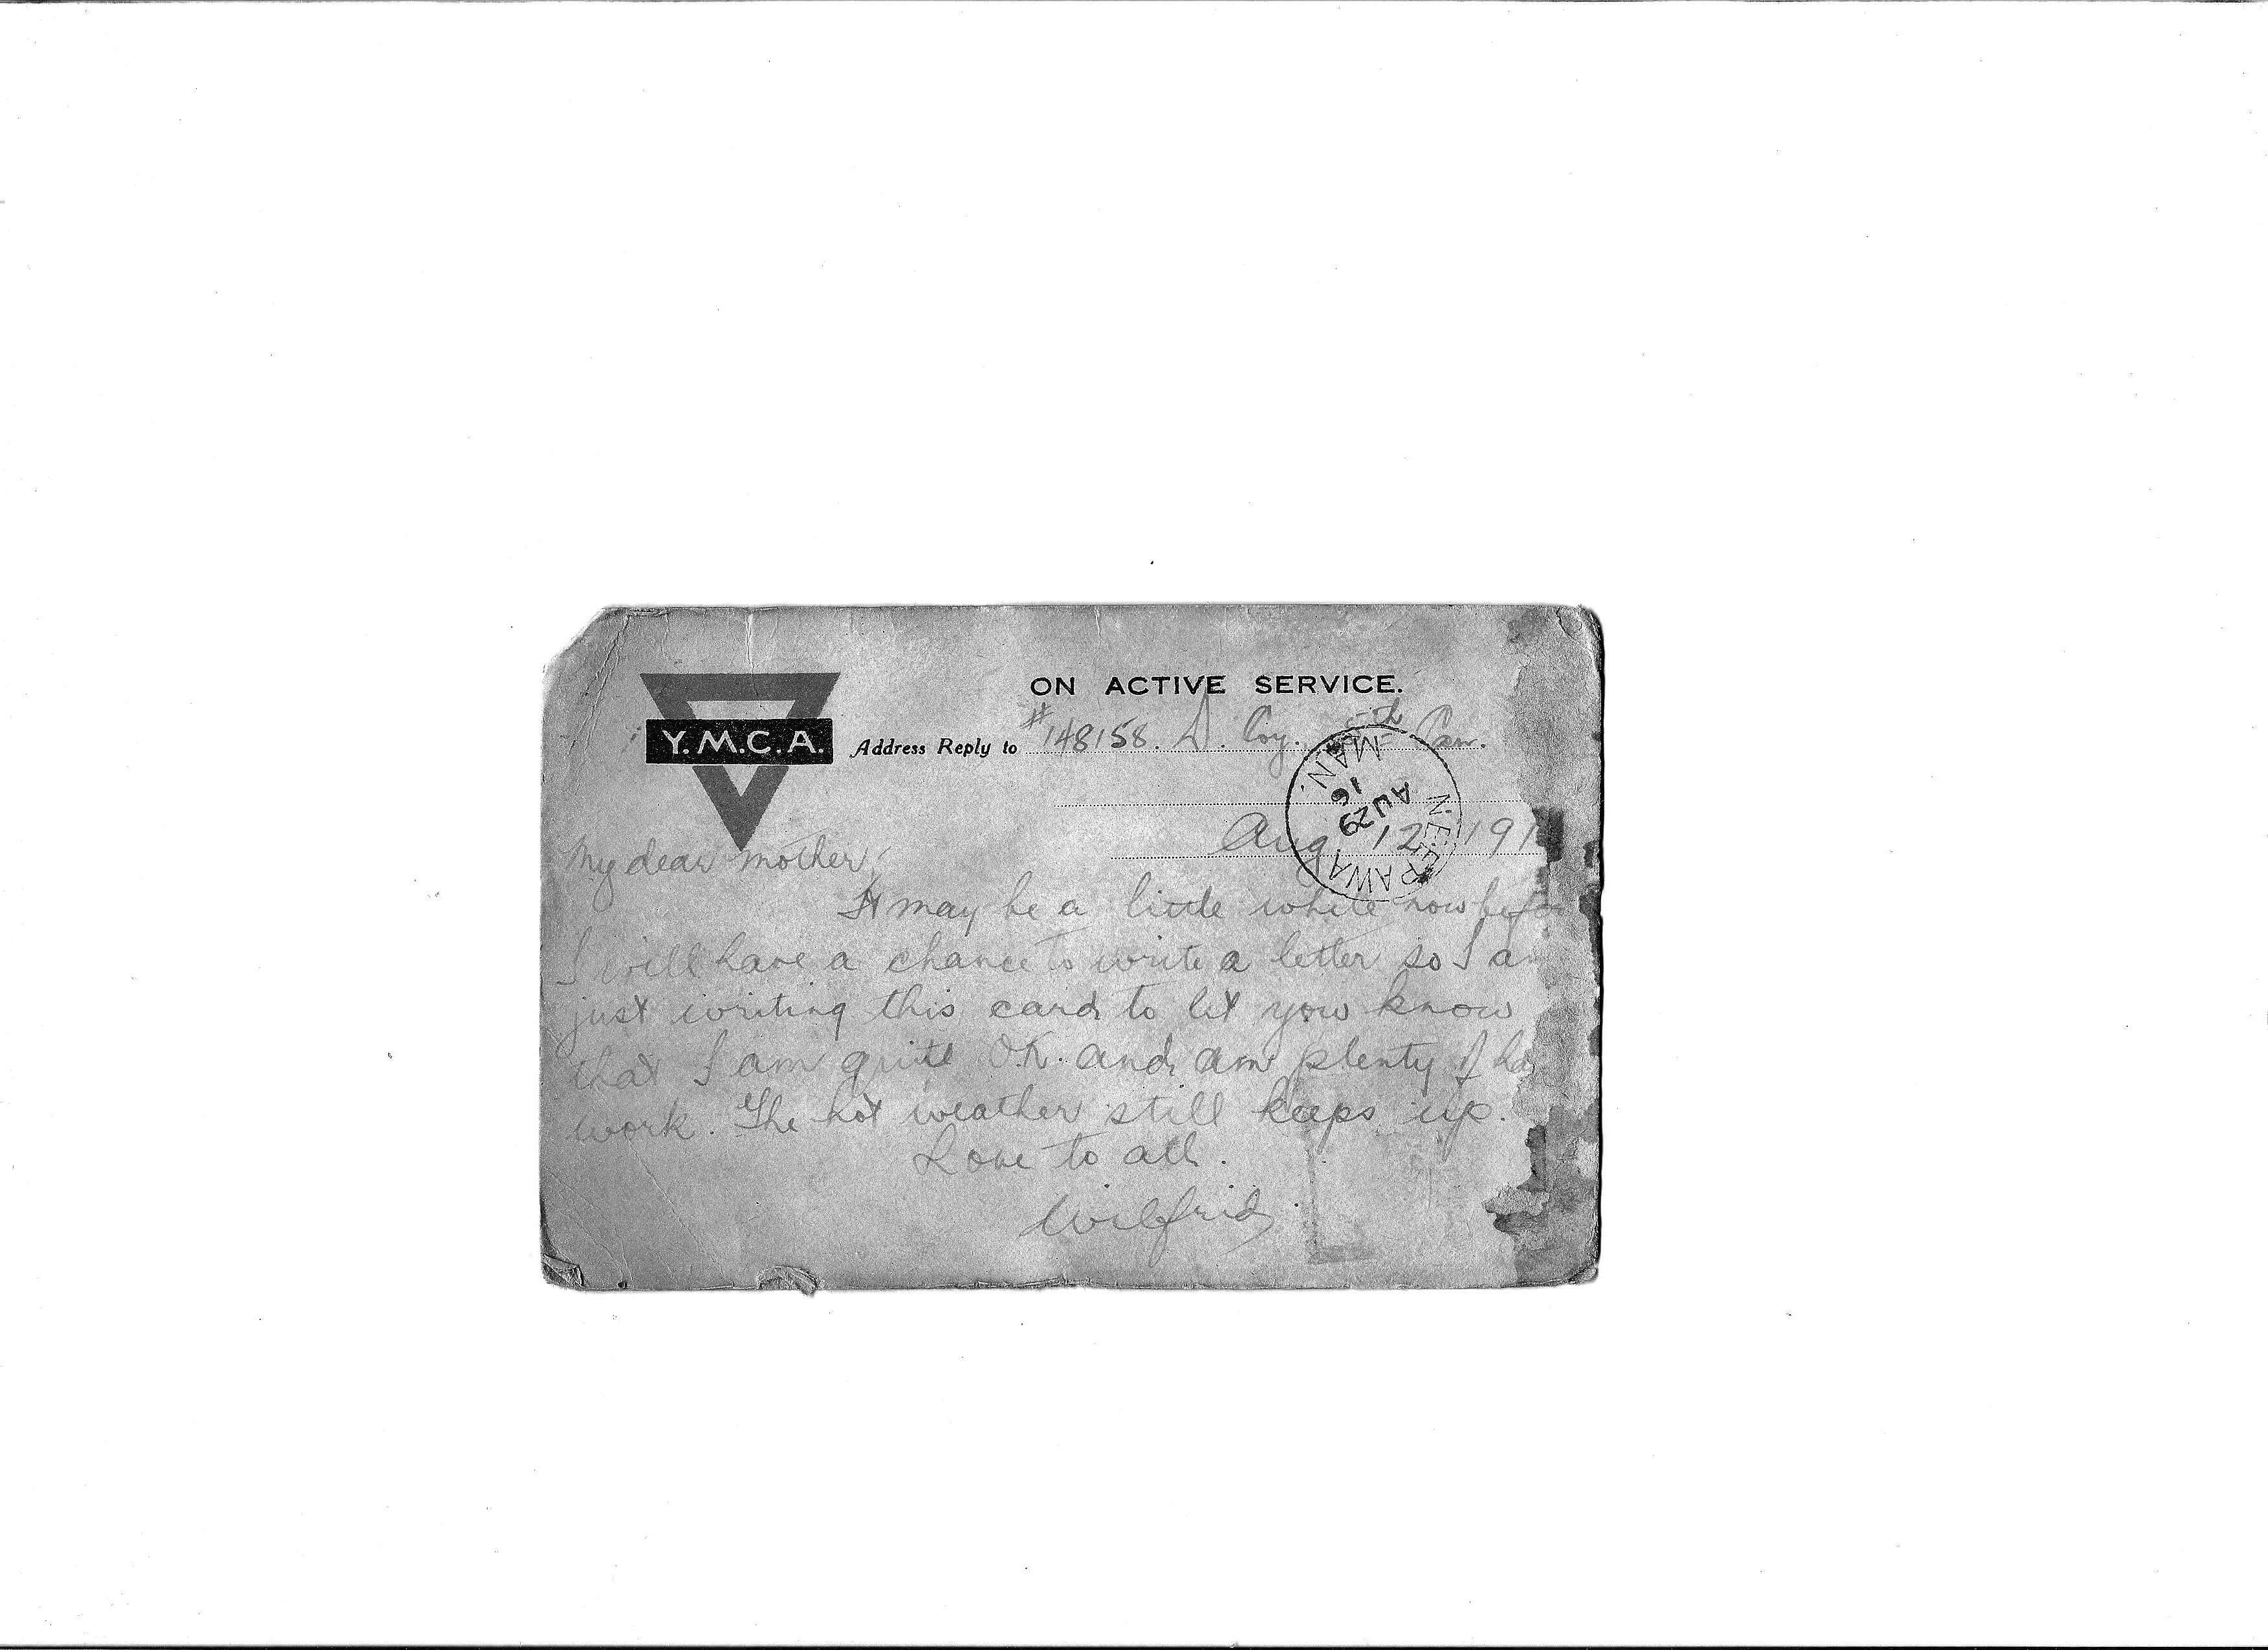 ON ACTIVE SERVICE.
Y.M.C.A.
Address Reply to #148158. D. Coy. th Can.
MAN.
AU 29
16
NEEPAWA
Aug 12 191
My dear mother,
It may be a little while now befo
I will have a chance to write a letter so I am
just writing this card to let you know
that I am quite O.K. and am plenty of ha
work. The hot weather still keeps up.
Love to all.
Wilfrid.